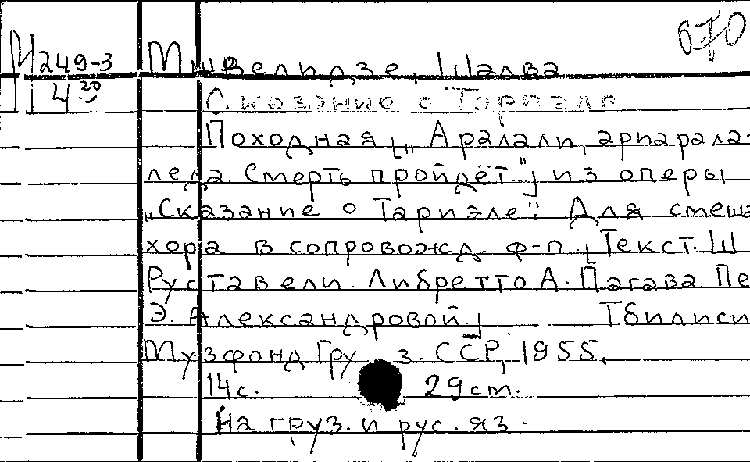 670
М 249-3 Мшвелидзе, Шалва
4 20 Сказание о Тариэле
Походная [„Аралали, арпарала-
лела. Смерть пройдёт"] из оперы
„Сказание о Тариэле". Для смеш
хора в сопровожд. ф-п. [Текст Ш
Руставели. Либретто А. Пагава Пе
Э. Александровой] Тбилиси
Музфонд Груз. ССР, 1955.
14 с. 29 см.
На груз. и рус. яз.